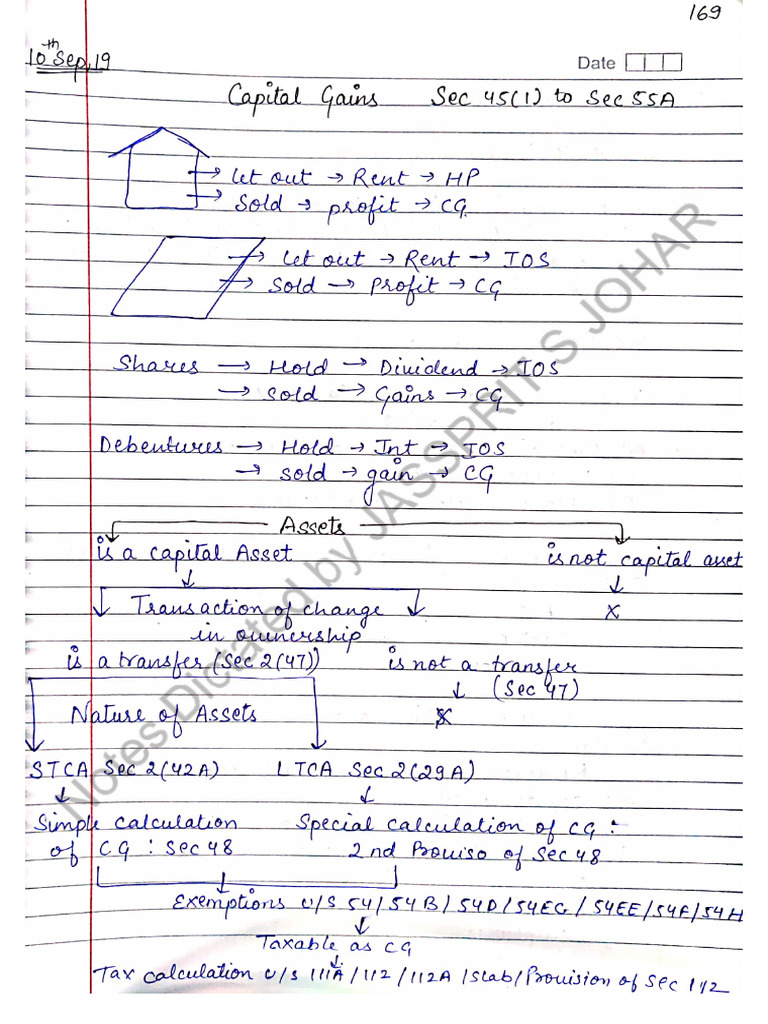 169
10th Sep, 19
Date
Capital Gains Sec 45(1) to Sec 55A
→ Let out → Rent → HP
→ Sold → profit → CG
→ Let out → Rent → IOS
→ Sold → Profit → CG
Shares → Hold → Dividend → IOS
→ Sold → Gains → CG
Debentures → Hold → Int → IOS
→ Sold → gain → CG
Assets
is a capital Asset is not capital asset
Transaction of change X
in ownership
is a transfer (Sec 2(47)) is not a transfer
(Sec 47)
Nature of Assets X
STCA Sec 2(42A) LTCA Sec 2(29A)
Simple calculation Special calculation of CG :
of CG : Sec 48 2nd Proviso of Sec 48
Exemptions U/S 54/54B/54D/54EG/54EE/54F/54H
Taxable as CG
Tax calculation U/S 111A/112/112A/Slab/Provision of Sec 112
Notes Dictated by JASSPRIT S JOHAR